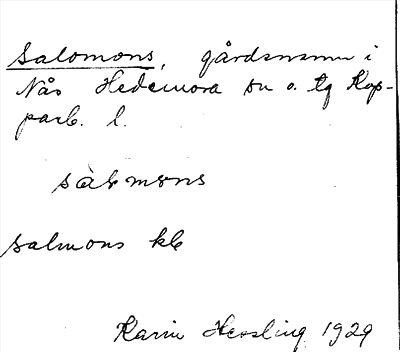 Salomons, gårdsnamn i
Nås Hedemora sn o. tg Kop-
parb. l.
sàlmɷns
salmons kb
Karin Hessling 1929